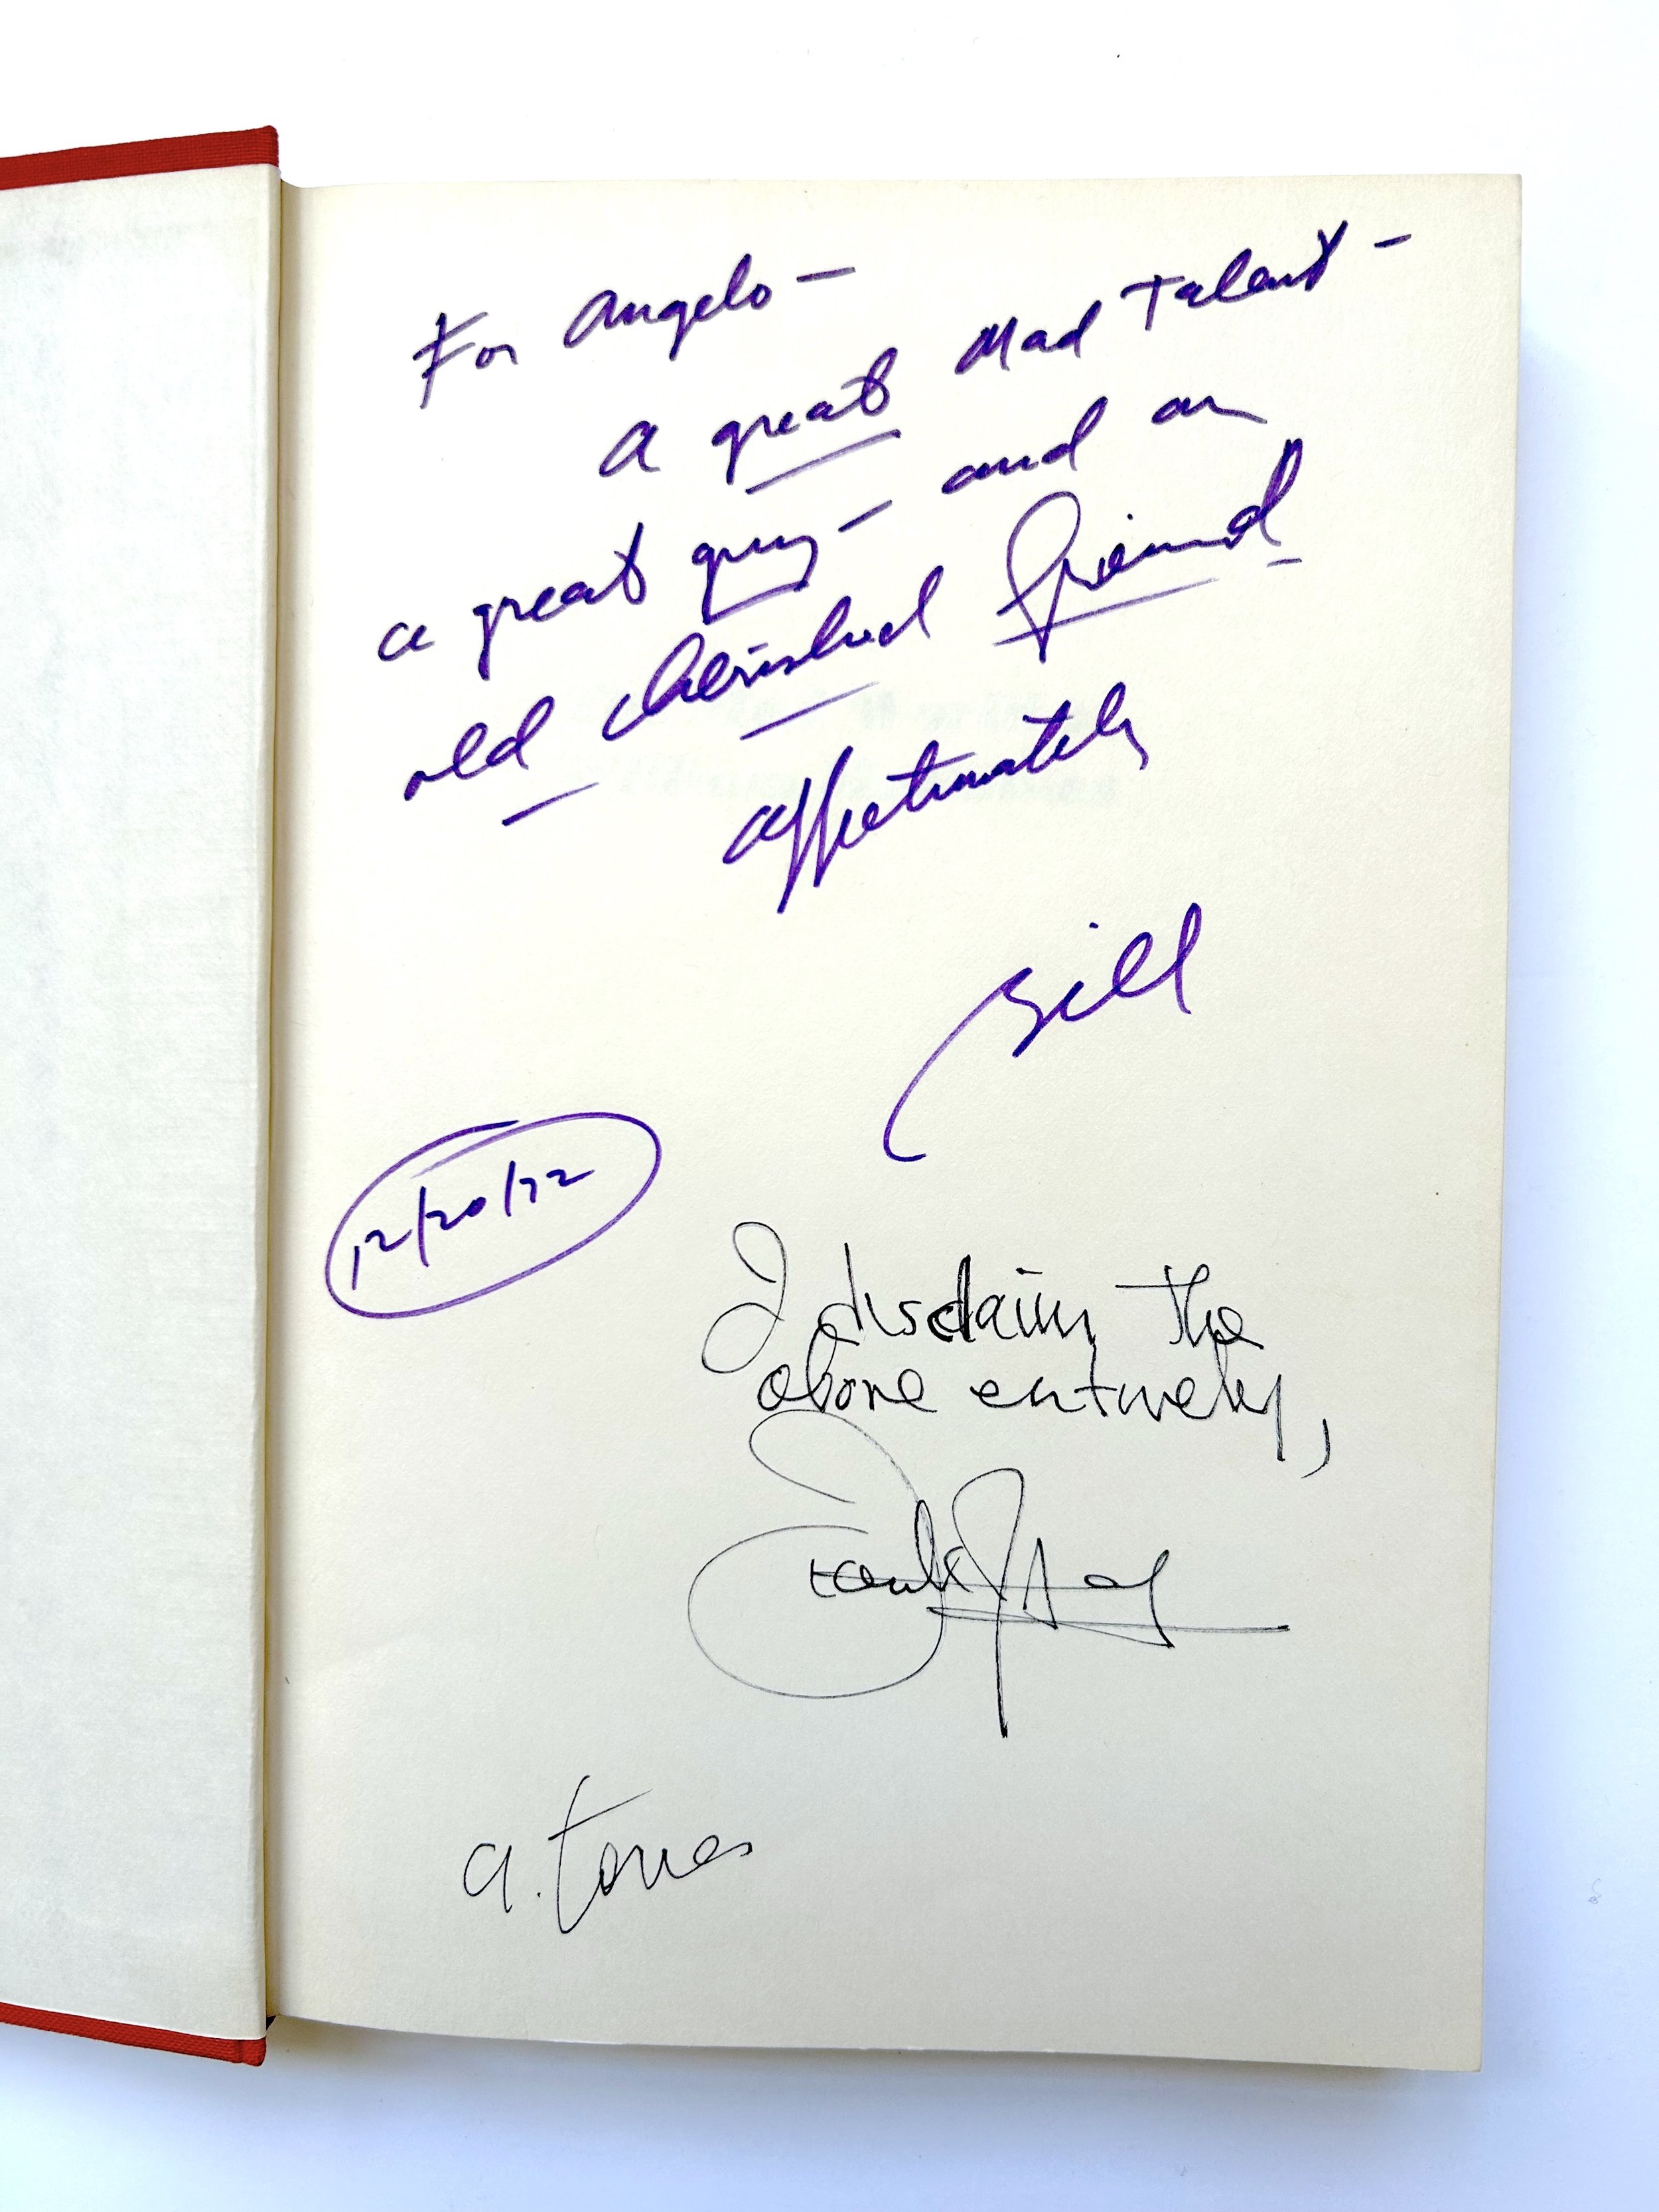 For Angelo —
a great Mad Talent —
a great guy — and an
old cherished friend —
affectionately
Bill
12/20/72
I disclaim the
above entirely,
Frank Jacobs
A. Torres